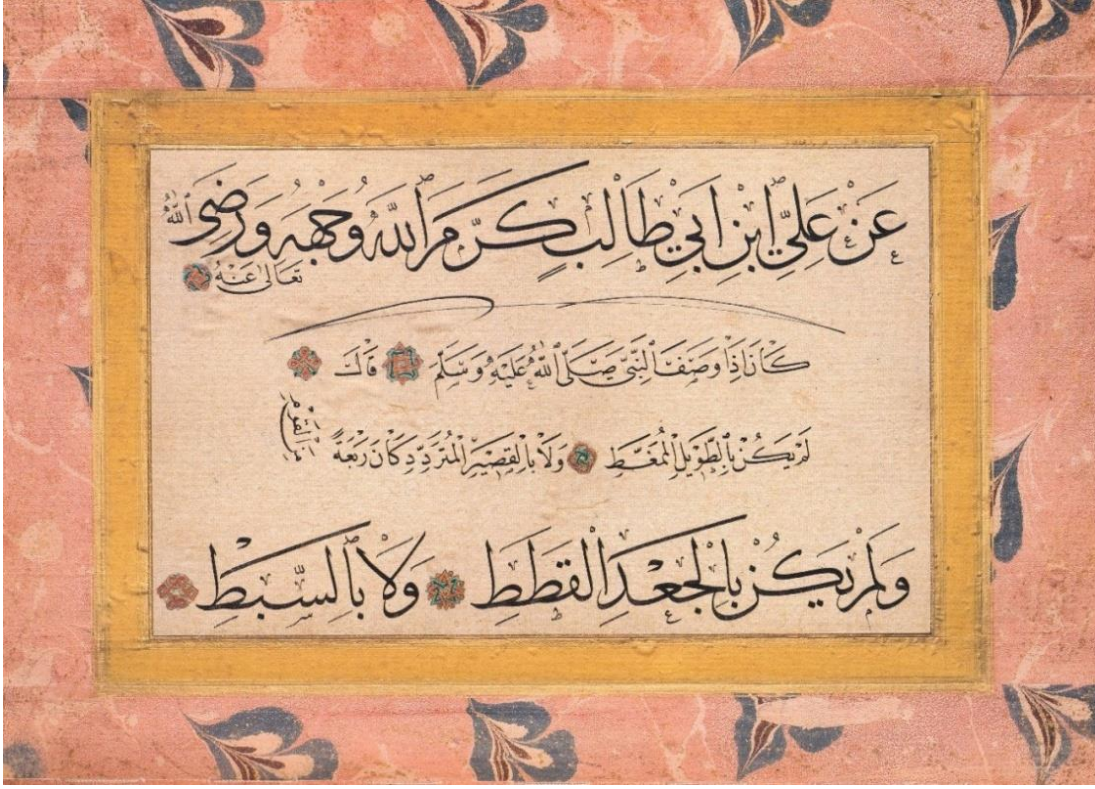 عَنْ عَلِيِّ ابْنِ اَبِي طَالِبٍ كَرَّمَ اللّٰهُ وَجْهَهُ وَرَضِيَ اللّٰهُ
تَعَالٰى عَنْهُ
كَانَ اِذَا وَصَفَ النَّبِيَّ صَلَّى اللّٰهُ عَلَيْهِ وَسَلَّمَ قَالَ
لَمْ يَكُنْ بِالطَّوِيلِ الْمُمَغَّطِ وَلَا بِالْقَصِيرِ الْمُتَرَدِّدِ كَانَ رَبْعَةً
مِنَ الْقَوْمِ
وَلَمْ يَكُنْ بِالْجَعْدِ الْقَطَطِ وَلَا بِالسَّبِطِ